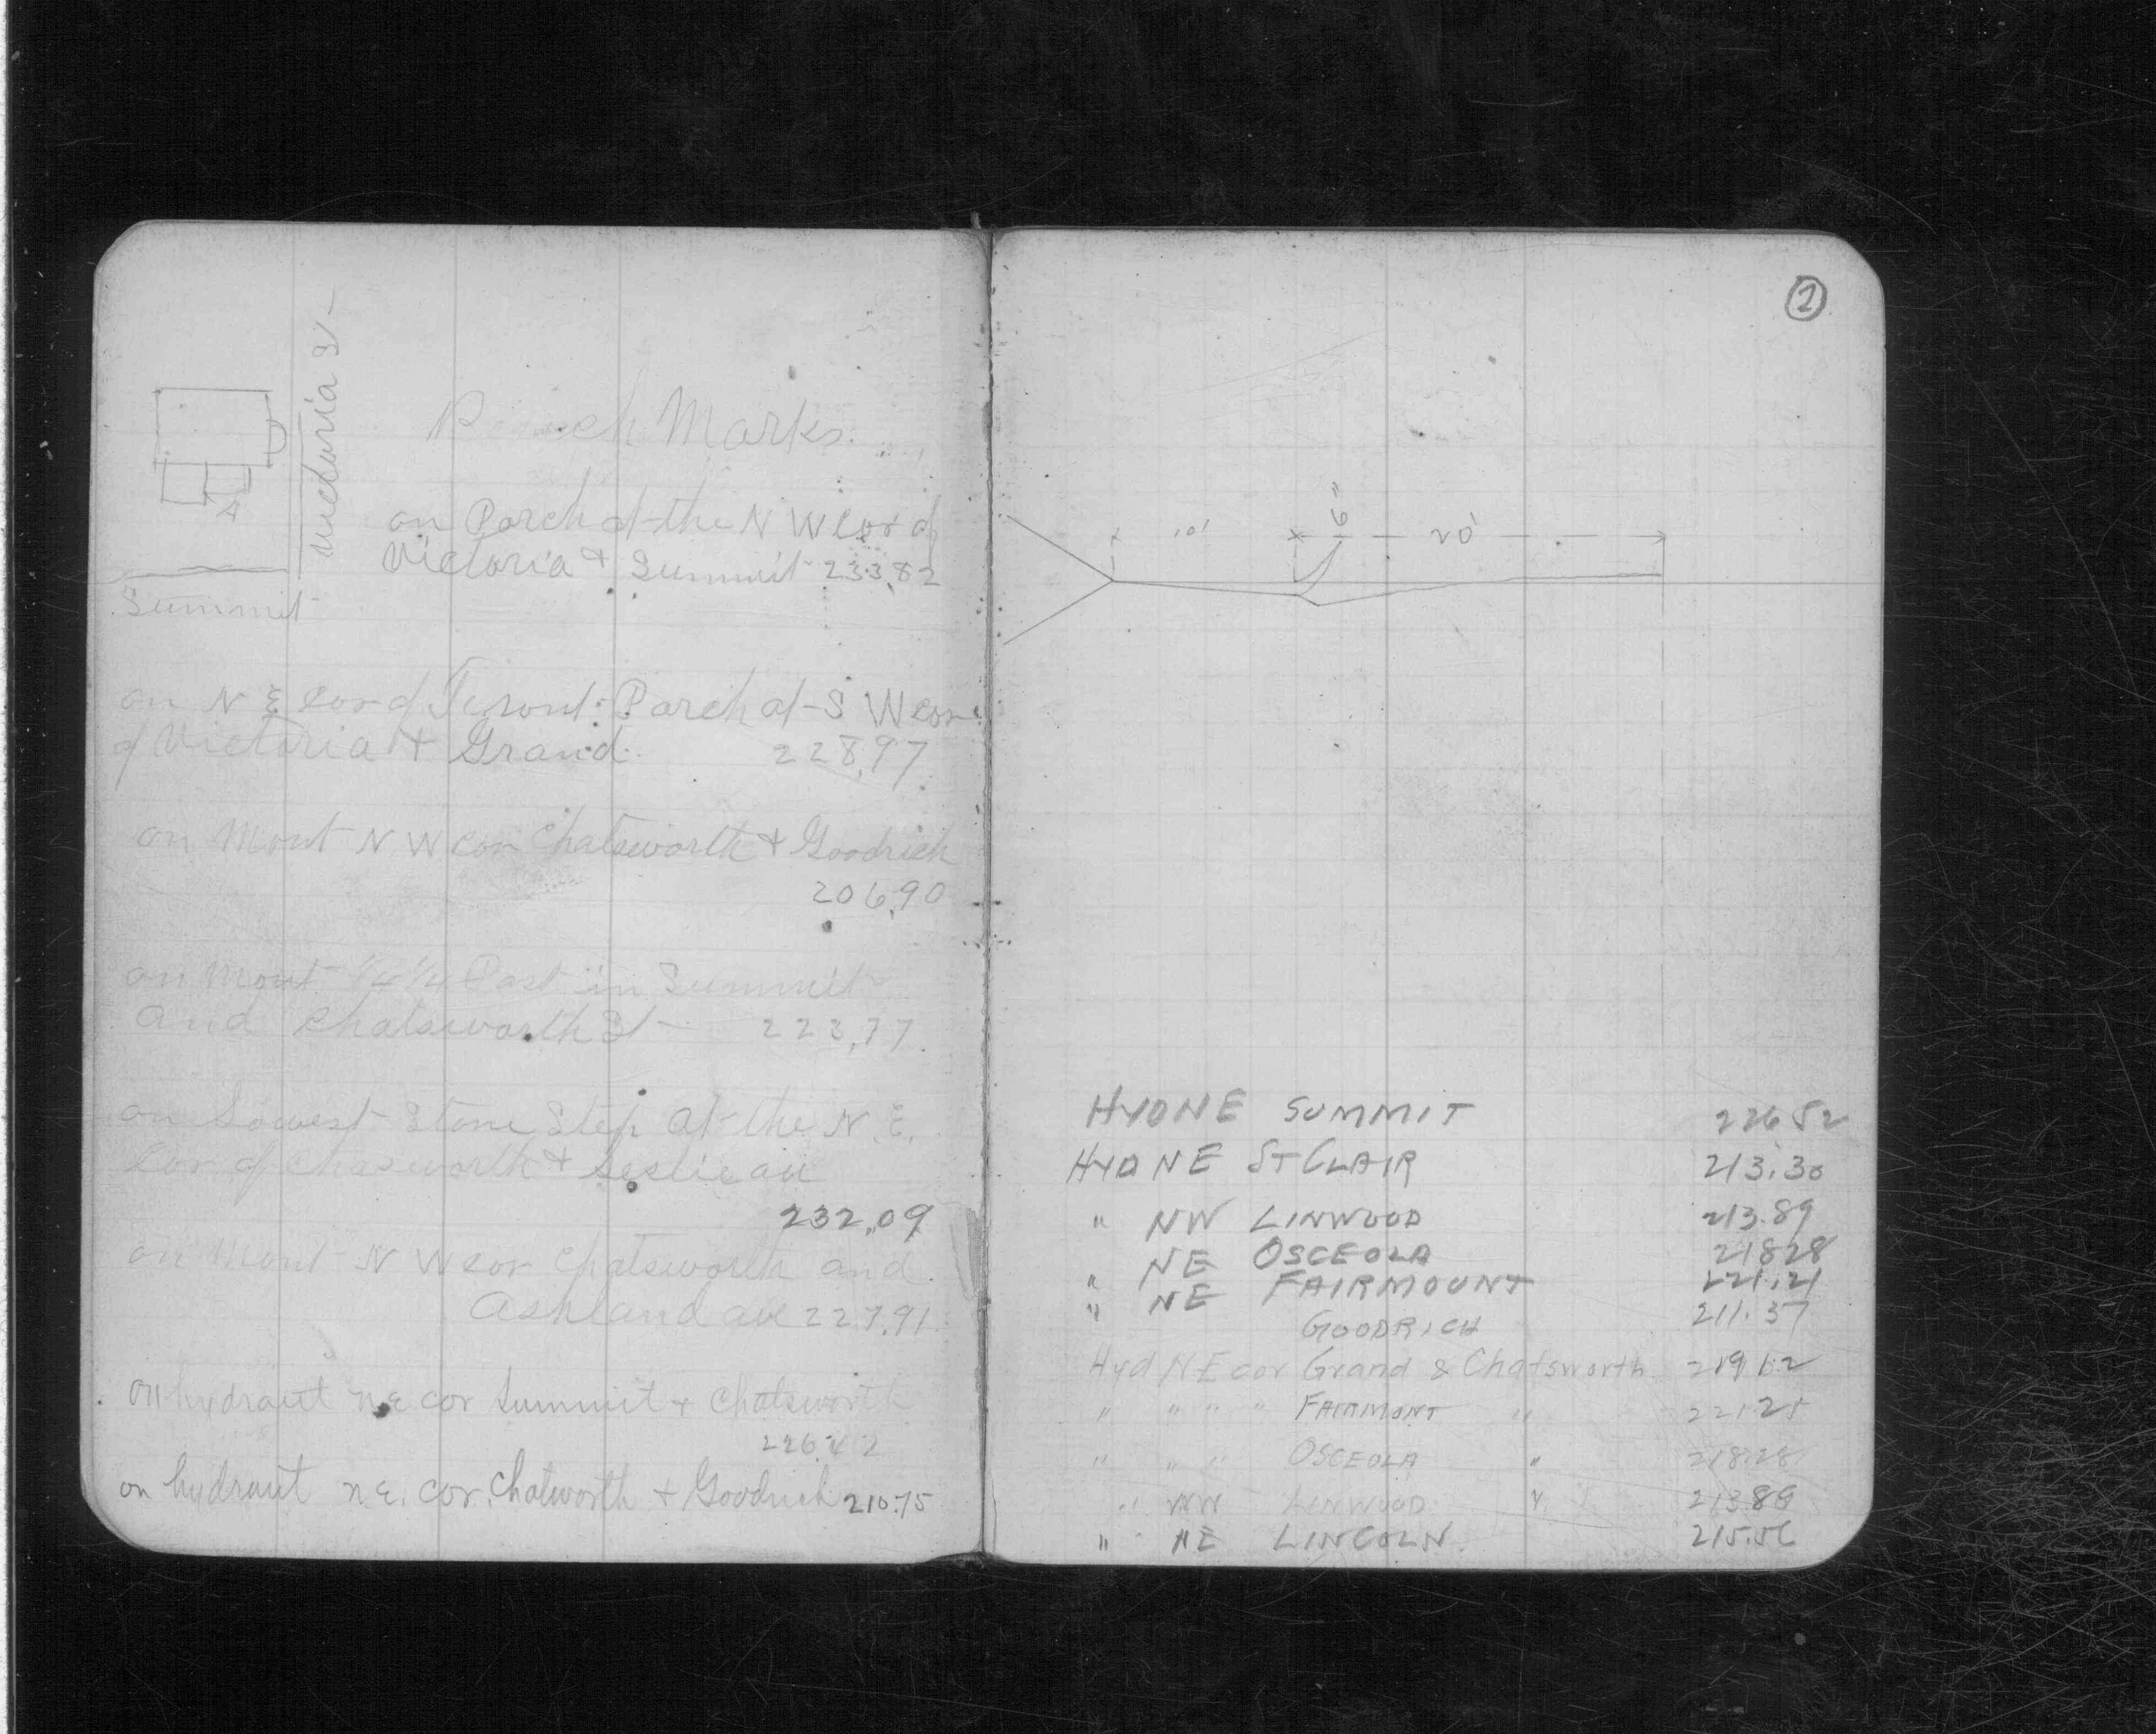 Victoria St
Bench Marks.
A
on Porch at the N W cor of
Victoria + Summit 233.82
Summit
on N E cor of Front Porch at S W cor
of Victoria + Grand. 228.97
on Mont N W cor Chatsworth + Goodrich
206.90
on Mont 1/4 1/4 Post in Summit
and Chatsworth St 223.77.
on Lowest Stone Step at the N.E.
Cor of Chasworth + Leslie av
232.09
on Mont N W cor Chatsworth and
Ashland ave 227.91
on hydrant N.E cor Summit + Chatsworth
226.42
on hydrant n.E. cor. Chatworth + Goodrich 210.75
1
10' 6" 20'
HYD NE SUMMIT 226 52
HYD NE ST CLAIR 213.30
" NW LINWOOD 213.89
NE OSCEOLA 218 28
" NE FAIRMOUNT 221.21
" GOODRICH 211.37
Hyd NE cor Grand & Chatsworth 219 62
" " " " FAIRMONT " 221 25
" " " OSCEOLA " 218.28
" NW LINWOOD " 213 88
" NE LINCOLN. 215.56